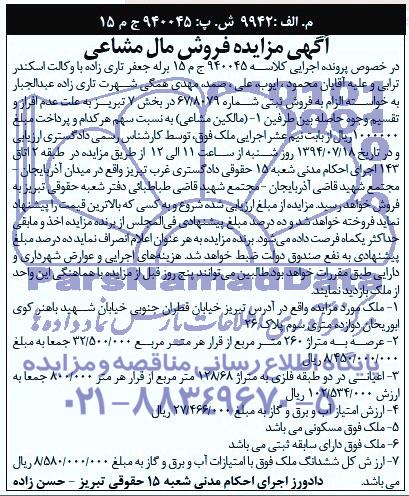 م. الف: ۹۹۴۲ ش. پ: ۹۴۰۰۴۵ ج م ۱۵
آگهی مزایده فروش مال مشاعی
در خصوص پرونده اجرایی کلاسه ۹۴۰۰۴۵ ج م ۱۵ برله جعفر تاری زاده با وکالت اسکندر
ترابی و علیه آقایان محمود، ایوب، علی، صمد، مهدی همگی شهرت تاری زاده عبدالجبار
به خواسته الزام به فروش ثبتی شماره ۶۷/۸۰۷۹ در بخش ۷ تبریز به علت عدم افراز و
تقسیم وجوه حاصله بین طرفین ۱- (مالکین مشاعی) به نسبت سهم هر کدام و پرداخت مبلغ
۱۰۰۰۰۰۰ ریال از بابت نیم عشر اجرایی ملک فوق، توسط کارشناس رسمی دادگستری ارزیابی
و در تاریخ ۱۳۹۴/۰۷/۱۸ روز شنبه از ساعت ۱۱ الی ۱۲ از طریق مزایده در طبقه ۲ اتاق
۱۴۳ اجرای احکام مدنی شعبه ۱۵ حقوقی دادگستری غرب تبریز واقع در میدان آذربایجان -
مجتمع شهید قاضی آذربایجان - مجتمع شهید قاضی طباطبائی دفتر شعبه حقوقی تبریز به
فروش خواهد رسید. مزایده از مبلغ ارزیابی شده شروع و به کسی که بالاترین قیمت را پیشنهاد
نماید فروخته خواهد شد و ده درصد مبلغ پیشنهادی فی‌المجلس از برنده مزایده اخذ و مابقی
حداکثر یکماه فرصت داده می‌شود. برنده مزایده به هر عنوان اعلام انصراف نماید ده درصد مبلغ
پیشنهادی به نفع صندوق دولت ضبط خواهد شد. هزینه‌های اجرایی و عوارض شهرداری و
دارایی طبق مقررات خواهد بود طالبین می‌توانند پنج روز قبل از مزایده با هماهنگی این واحد
از ملک بازدید نمایند.
۱- ملک مورد مزایده واقع در آدرس تبریز خیابان قطران جنوبی خیابان شهید باهنر کوی
ابوریحان دوازده متری سوم پلاک ۲۶
۲- عرصه به متراژ ۲۶۰ متر مربع از قرار هر متر مربع ۳۲/۵۰۰/۰۰۰ جمعا به مبلغ
۸/۴۵۰/۰۰۰/۰۰۰ ریال
۳- اعیانی در دو طبقه فلزی به متراژ ۱۲۸/۶۸ متر مربع از قرار هر متر ۸۰۰/۰۰۰ جمعا به
ارزش ۱۰۲/۵۳۴/۰۰۰ ریال
۴- ارزش امتیازات آب و برق و گاز به مبلغ ۲۷/۴۶۶/۰۰۰ ریال
۵- ملک فوق مسکونی می باشد
۶- ملک فوق دارای سابقه ثبتی می باشد
۷- ارزش کل ششدانگ ملک فوق با امتیازات آب و برق و گاز به مبلغ ۸/۵۸۰/۰۰۰/۰۰۰ ریال
دادورز اجرای احکام مدنی شعبه ۱۵ حقوقی تبریز - حسن زاده
پایگاه اطلاع رسانی مناقصه و مزایده
۰۲۱-۸۸۳۴۹۶۷۰-۵